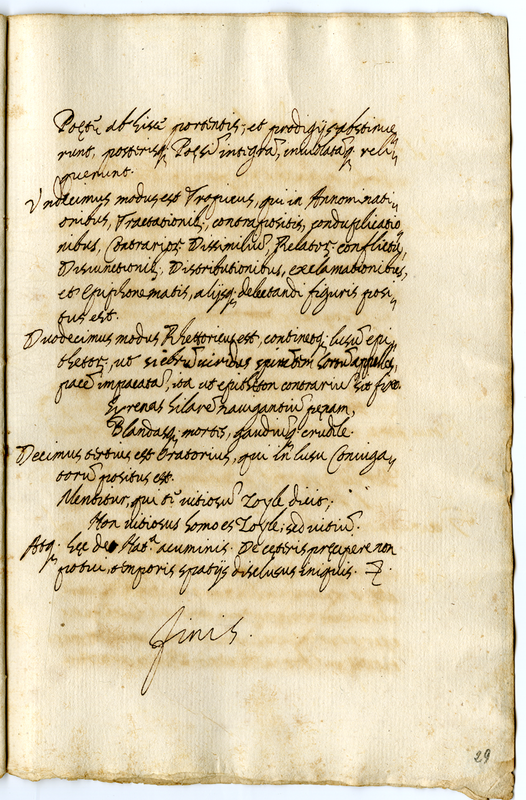 Poetę ab hisce portentis, et prodigijs abstinue,,
runt, posterisq. Poesim integrã, inuiolatãq. reli,,
querunt.
Vndecimus modus est Tropicus, qui in Annominati,,
onibus, Tractationib., contrapositis, conduplicatio,,
nibus, Contrarior. Dissimiliũ, Relator. conflictu,
Disiunctionib. Distributionibus, exclamationibus,
et Epiphonematis, alijsq. delectandi figuris posi,,
tus est.
Duodecimus modus Rhetoricus est, continetq. lusũ epi,,
thetor. ut si ebriũ
pacẽ impacatã, ita ut epitheton contrariũ sit
Syrenas hilarẽ nauigantiũ pęnam,
Blandasq. mortis, gaudiũq. crudele.
Decimus tertius est Oratorius, qui in lusu Coniuga,,
torũ positus est.
Mentitur, qui tẽ vitiosũ Zoyle dicit;
Non vitiosus homo es Zoyle, sed vitiũ.
Atq. hęc de acuminis. De cęteris pręcipere non
potui, temporis spatijs disclusus iniquis.
Finis.
29